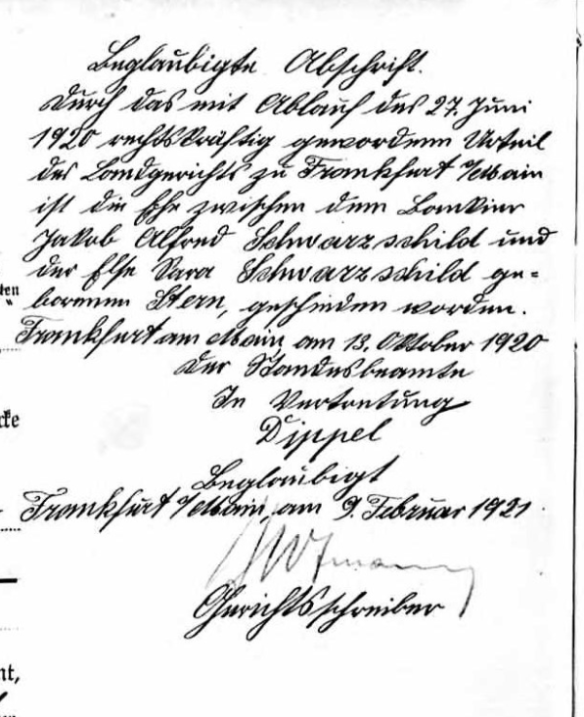 Beglaubigte Abschrift.
Durch das mit Ablauf des 27. Juni
1920 rechtskräftig gewordene Urteil
des Landgerichts zu Frankfurt /Main
ist die Ehe zwischen dem Bankier
Jakob Alfred Schwarzschild und
der Else Sara Schwarzschild ge-
borenen Stern, geschieden worden.
Frankfurt am Main, am 13. Oktober 1920
Der Standesbeamte
In Vertretung
Dippel
Beglaubigt
Frankfurt /Main, am 9. Februar 1921.
Gerichtsschreiber
ten
"
cke
nt,